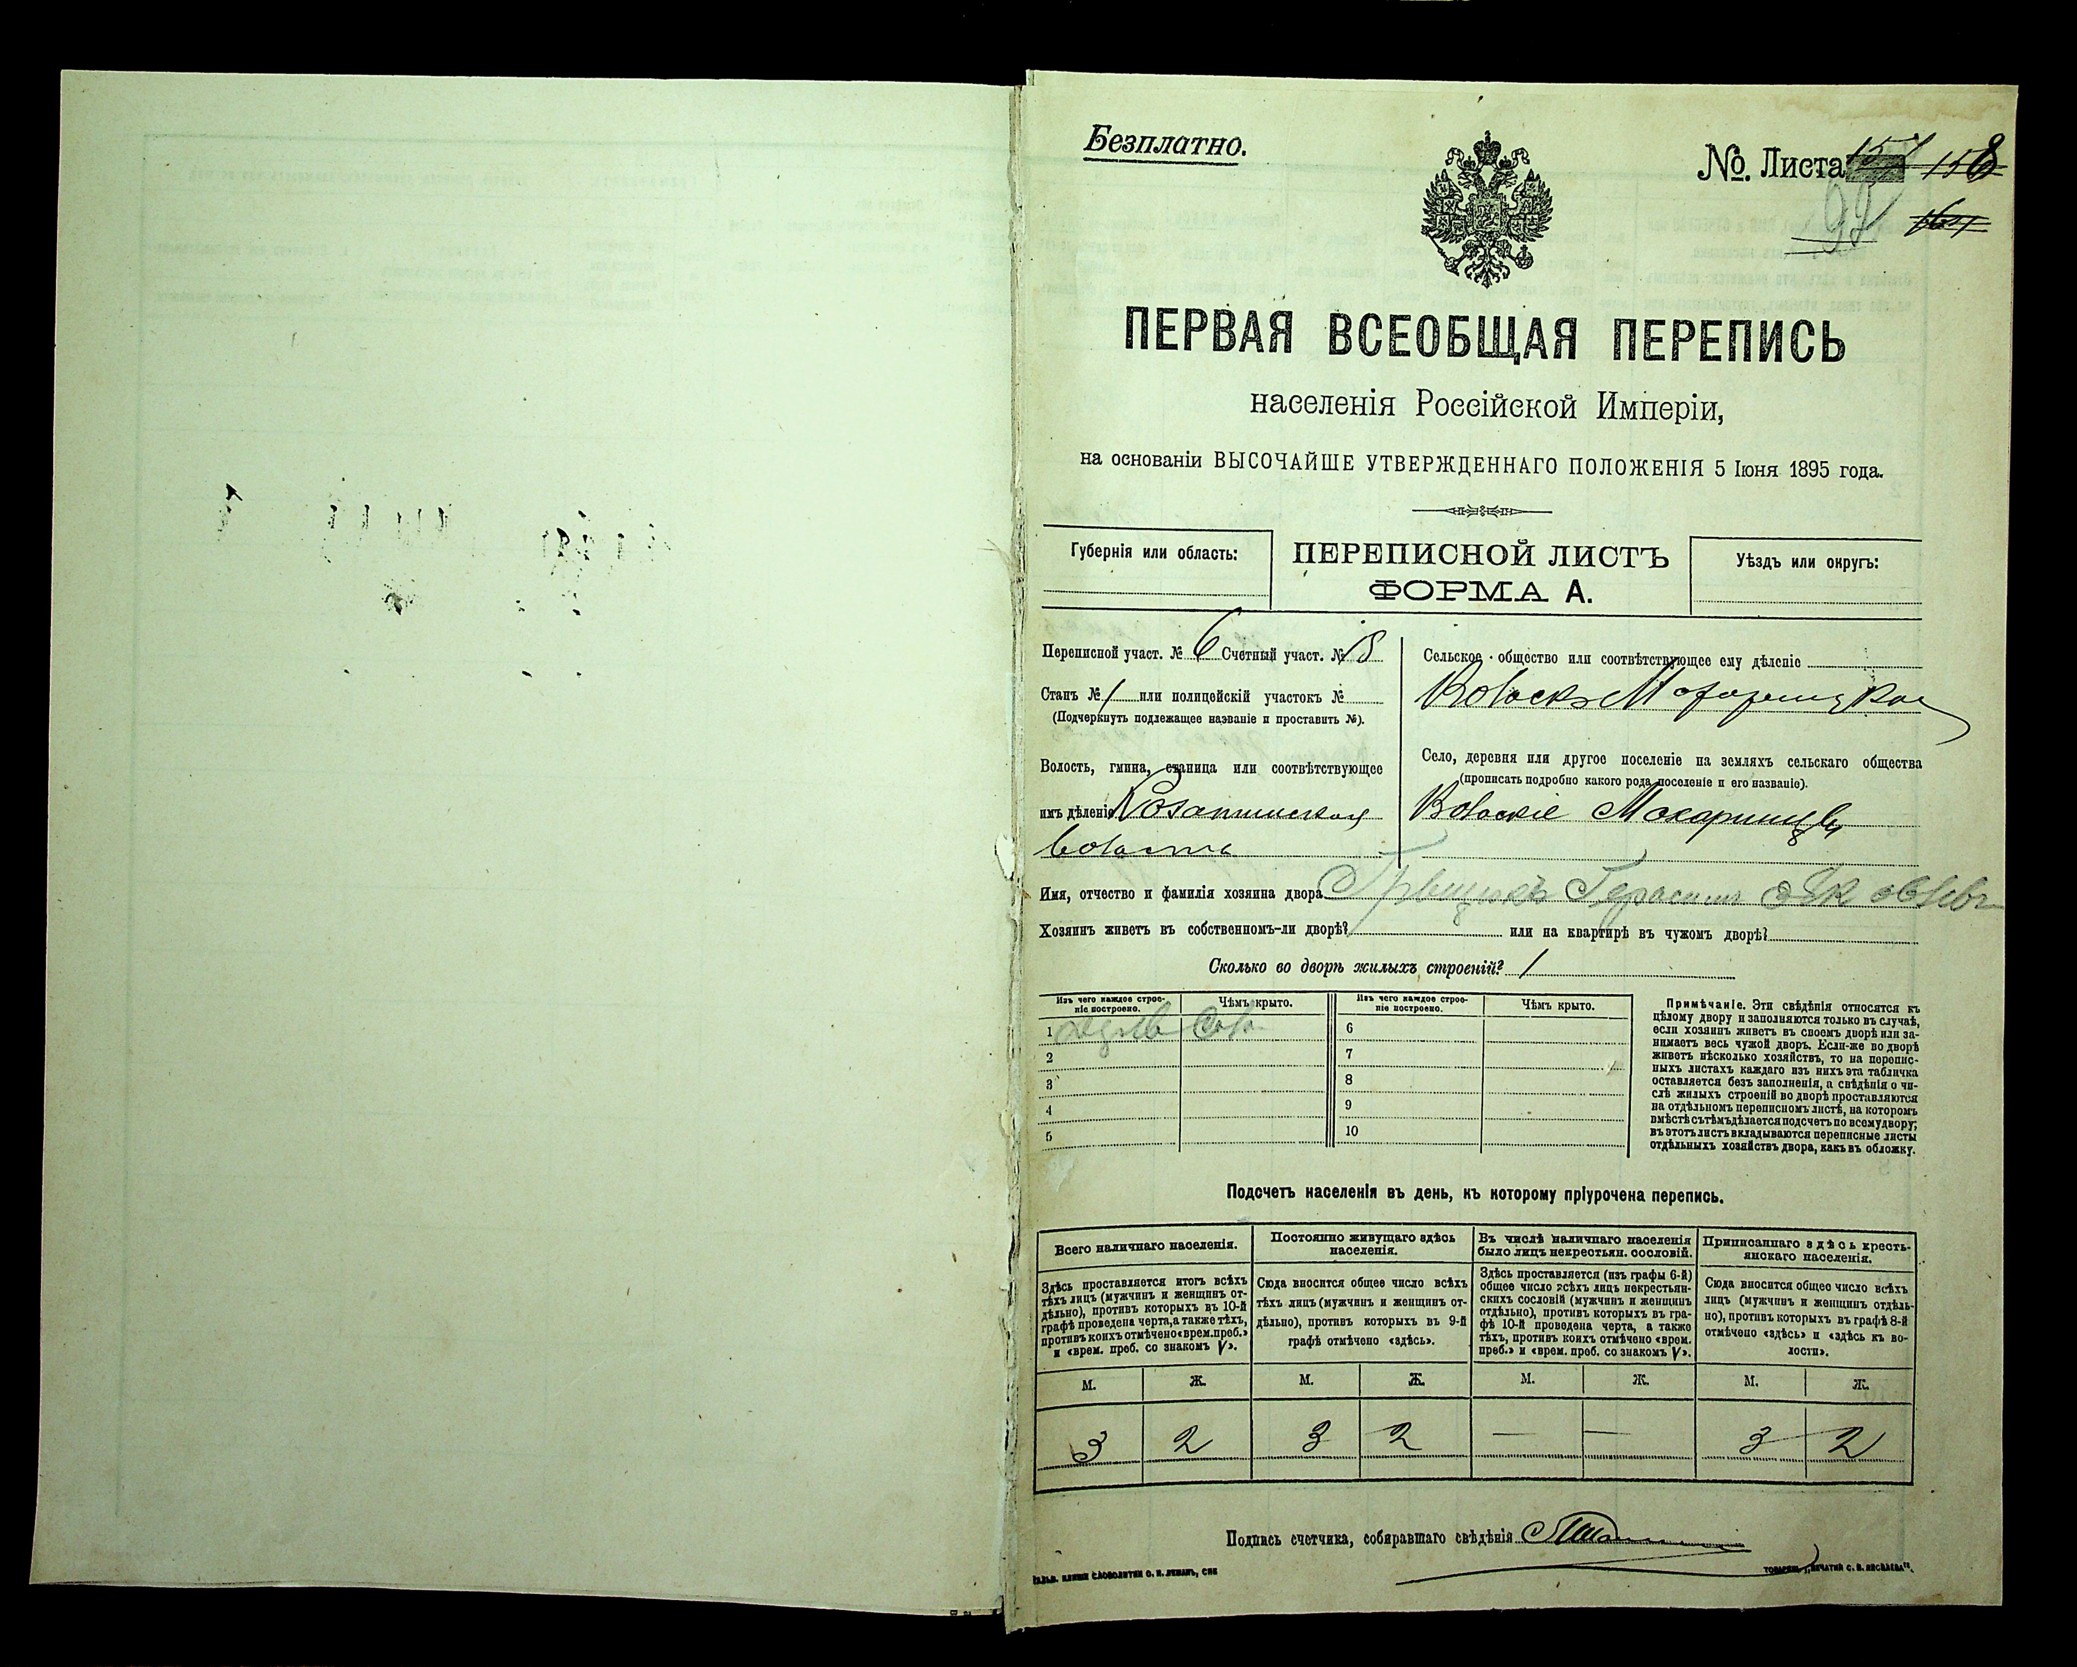 Безплатно.
№. Листа 157 158
92
ПЕРВАЯ ВСЕОБЩАЯ ПЕРЕПИСЬ
населенія Россійской Имперіи,
на основаніи ВЫСОЧАЙШЕ УТВЕРЖДЕННАГО ПОЛОЖЕНІЯ 5 Іюня 1895 года.
Губернія или область:
ПЕРЕПИСНОЙ ЛИСТЪ
ФОРМА А.
Уѣздъ или округъ:
Переписной участ. № 6 Счетный участ. № 18
Станъ № 1 или полицейскій участокъ №
(Подчеркнуть подлежащее названіе и проставить №).
Волость, гмина, станица или соотвѣтствующее
имъ дѣленіе
волость
Сельское общество или соотвѣтствующее ему дѣленіе
Село, деревня или другое поселеніе на земляхъ сельскаго общества
(прописать подробно какого рода поселеніе и его названіе).
Макаринцы
Имя, отчество и фамилія хозяина двора Герасимъ
Хозяинъ живетъ въ собственномъ-ли дворѣ? или на квартирѣ въ чужомъ дворѣ?
Сколько во дворѣ жилыхъ строеній? 1
Изъ чего каждое строе-
ніе построено.
Чѣмъ крыто.
Изъ чего каждое строе-
ніе построено.
Чѣмъ крыто.
1
2
3
4
5
6
7
8
9
10
Примѣчаніе. Эти свѣдѣнія относятся къ
цѣлому двору и заполняются только въ случаѣ,
если хозяинъ живетъ въ своемъ дворѣ или за-
нимаетъ весь чужой дворъ. Если-же во дворѣ
живетъ нѣсколько хозяйствъ, то на перепис-
ныхъ листахъ каждаго изъ нихъ эта табличка
оставляется безъ заполненія, а свѣдѣнія о чи-
слѣ жилыхъ строеній во дворѣ проставляются
на отдѣльномъ переписномъ листѣ, на которомъ
вмѣстѣ съ тѣмъ дѣлается подсчетъ по всему двору;
въ этотъ листъ вкладываются переписные листы
отдѣльныхъ хозяйствъ двора, какъ въ обложку.
Подсчетъ населенія въ день, къ которому пріурочена перепись.
Всего наличнаго населенія.
Здѣсь проставляется итогъ всѣхъ
тѣхъ лицъ (мужчинъ и женщинъ от-
дѣльно), противъ которыхъ въ 10-й
графѣ проведена черта, а также тѣхъ,
противъ коихъ отмѣчено «врем. преб.»
и «врем. преб. со знакомъ V».
Постоянно живущаго здѣсь
населенія.
Сюда вносится общее число всѣхъ
тѣхъ лицъ (мужчинъ и женщинъ от-
дѣльно), противъ которыхъ въ 9-й
графѣ отмѣчено «здѣсь».
Въ числѣ наличнаго населенія
было лицъ некрестьян. сословій.
Здѣсь проставляется (изъ графы 6-й)
общее число всѣхъ лицъ некрестьян-
скихъ сословій (мужчинъ и женщинъ
отдѣльно), противъ которыхъ въ гра-
фѣ 10-й проведена черта, а также
тѣхъ, противъ коихъ отмѣчено «врем.
преб.» и «врем. преб. со знакомъ V».
Приписаннаго здѣсь кресть-
янскаго населенія.
Сюда вносится общее число всѣхъ
лицъ (мужчинъ и женщинъ отдѣль-
но), противъ которыхъ въ графѣ 8-й
отмѣчено «здѣсь» и «здѣсь къ во-
лости».
М. Ж. М. Ж. М. Ж. М. Ж.
3 2 3 2 — — 3 2
Подпись счетчика, собиравшаго свѣдѣнія